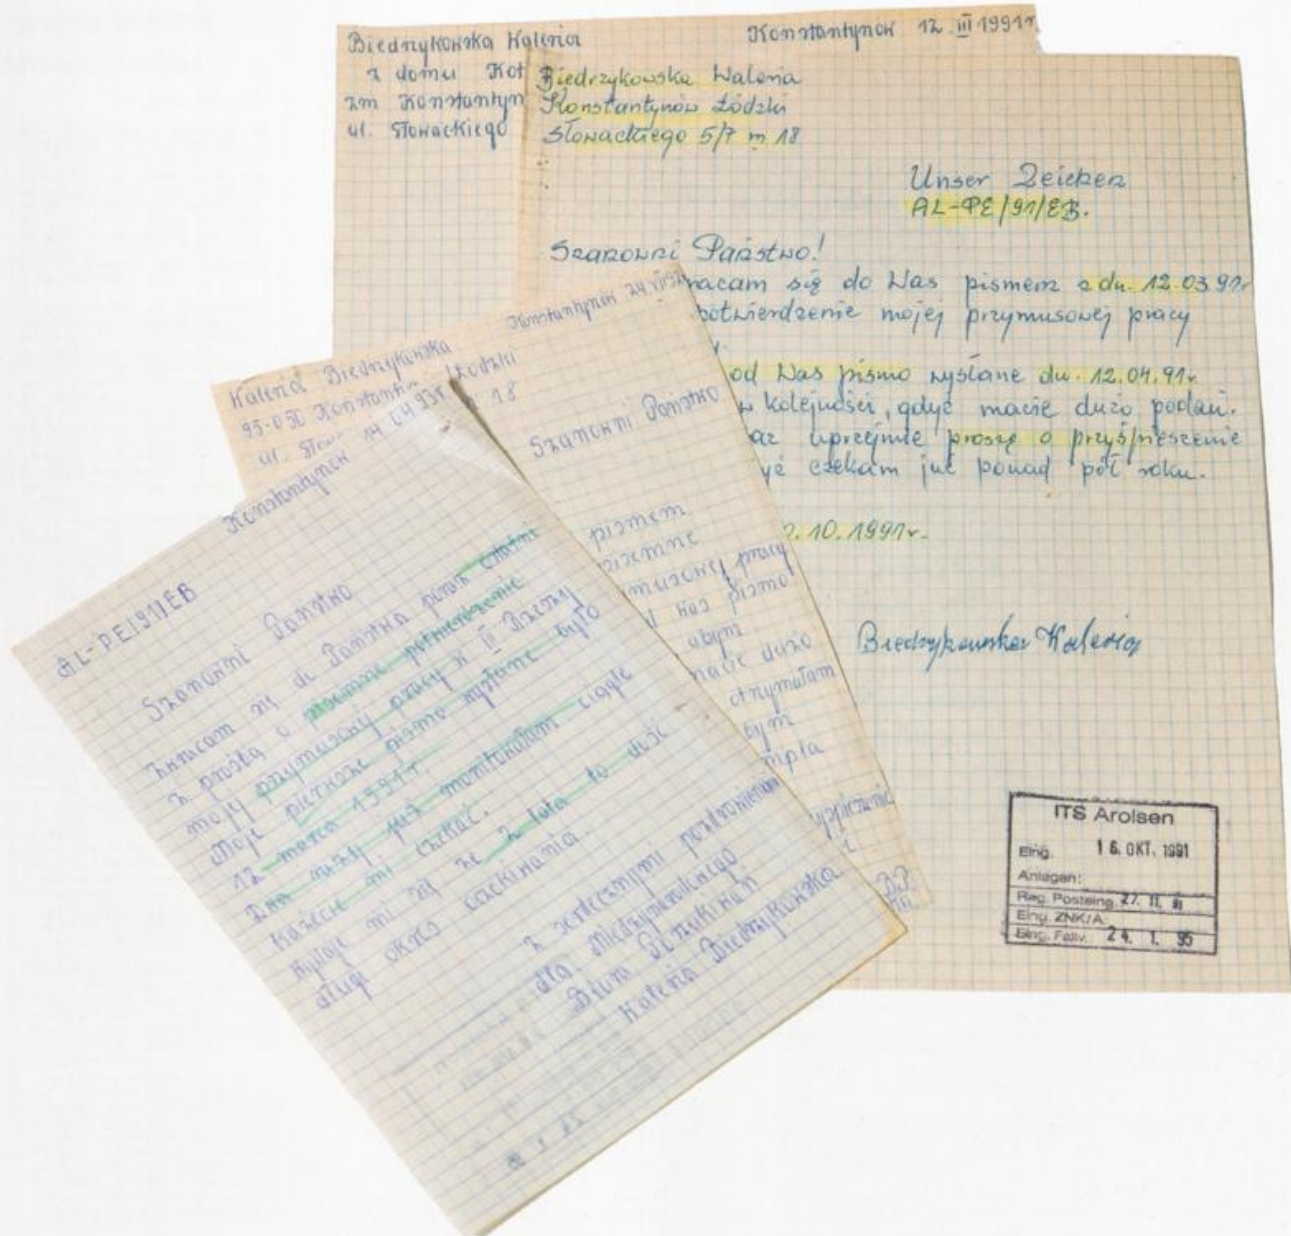 Biedrzykowska Waleria
Konstantynów 12 III 1991r
z domu Kot
zm Konstantyn
ul. Słowackiego
Biedrzykowska Waleria
Konstantynów Łódzki
Słowackiego 5/7 m 18
Unser Zeichen
AL-PE/91/EB.
Szanowni Państwo!
racam się do Was pismem z dn. 12.03 91r
potwierdzenie mojej przymusowej pracy
od Was pismo wysłane dn. 12.04.91r.
w kolejności, gdyż macie dużo podań.
az uprzejmie proszę o przyśpieszenie
yż czekam już ponad pół roku.
.10.1991r.
Biedrzykowska Waleria
ITS Arolsen
Eing. 16. OKT. 1991
Anlagen:
Reg. Posteing.
Eing. ZNK/A:
24. 1. 95
Konstantynów 24 VII
Waleria Biedrzykowska
95-050 Konstantyn Łódzki
ul. Sło 18
Szanowni Państwo
pismem
pisemne
musowej pracy
Was pismo
abym
macie dużo
otrzymałam
bym
Konstantynów 14 04 93r
AL-PE/91/EB
Szanowni Państwo
Zwracam się do Państwa
z prośbą o pisemne potwierdzenie
mojej przymusowej pracy w III Rzeszy
Moje pierwsze pismo wysłane było
12 marca 1991r.
Dwa razy już monitowałam ciągle
każecie mi czekać.
Wydaje mi się że 2 lata to dość
długi okres oczekiwania.
z serdecznymi pozdrowieniami
dla Międzynarodowego
Biura Poszukiwań
Waleria Biedrzykowska